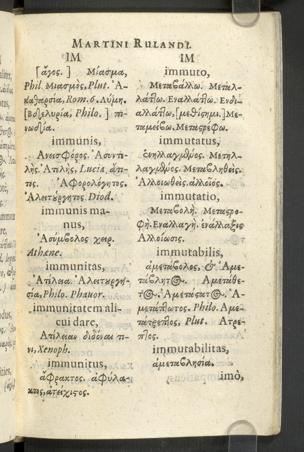 MARTINI RULANDI.
IM
[ἄγος.] Μίασμα,
Phil. Μιασμὸς, Plut. Ἀ-
καθαρσία, Rom. 6. Λύμη.
[Βδελυρία, Philo.]
immunis,
Ἀνεισφόρος. Ἀσυντε-
λὴς. Ἀτελὴς, Lucia.
Ἀφορολόγητος.
Ἀλειτούργητος. Diod.
immunis ma-
nus,
Ἀσύμβολος χεὶρ.
Athene.
immunitas,
Ἀτέλεια. Ἀλειτουργη-
σία, Philo. Phauor.
immunitatem ali-
cui dare,
Ἀτέλειαν διδόναι τι-
νι, Xenoph.
immunitus,
ἄφρακτος. ἀφύλα-
κτος, ἀτείχιστος.
IM
immuto,
Μεταβάλλω. Μεταλ-
λάττω. Ἐναλλάττω. Ἐνδι-
αλλάττω, [μεθίστημι.] Με-
ταμείβω. Μεταστρέφω.
immutatus,
ἐνηλλαγμένος. Μετηλ-
λαγμένος. Μεταβληθείς.
Ἀλλοιωθεὶς. ἀλλοῖος.
immutatio,
Μεταβολὴ. Μεταστρο-
φὴ. Ἐναλλαγὴ. ἐνάλλαξις
Ἀλλοίωσις.
immutabilis,
ἀμετάβολος. & Ἀμε-
τάβλητος. Ἀμετάθε-
τος. Ἀμετάστατος. Ἀ-
μετάπτωτος. Philo. Ἀμε-
τάτρεπτος, Plut. Ἄτρε-
πτος.
immutabilitas,
ἀμεταβλησία.
imò,